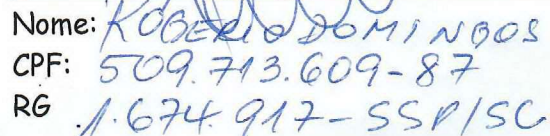 Nome: ROBERIO DOMINGOS
CPF: 509.713.609-87
RG 1.674.917-SSP/SC